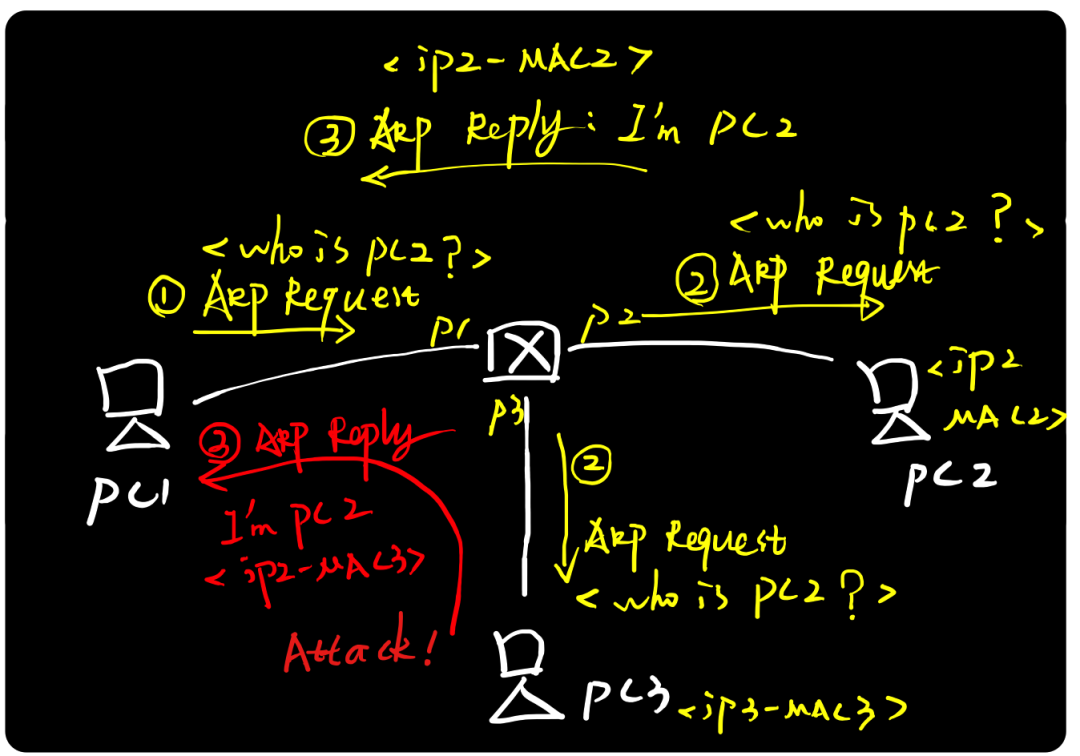 <ip2-MAC2>
③ ARP Reply: I'm PC2
<who is pc2?>
① ARP Request
<who is pc2?>
② ARP Request
p1
p2
p3
<ip2
MAC2>
PC1
PC2
③ ARP Reply
I'm pc2
<ip2-MAC3>
Attack!
②
ARP Request
<who is pc2?>
PC3 <ip3-MAC3>